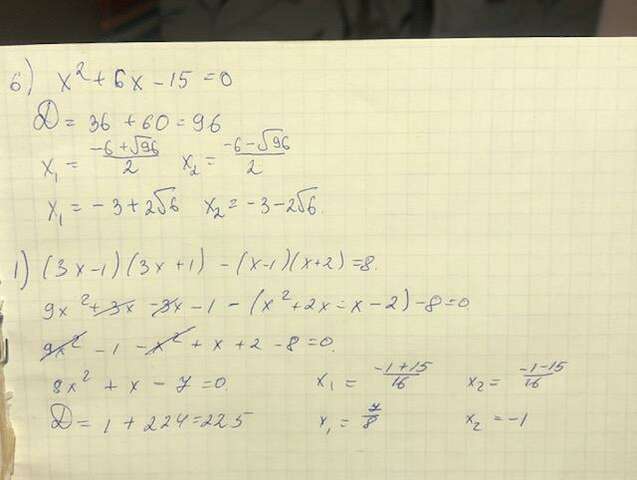 6) x² + 6x - 15 = 0
D = 36 + 60 = 96
x₁ = (-6 + √96)/2 x₂ = (-6 - √96)/2
x₁ = -3 + 2√6 x₂ = -3 - 2√6.
1) (3x-1)(3x+1) - (x-1)(x+2) = 8.
9x² + 3x - 3x - 1 - (x² + 2x - x - 2) - 8 = 0
9x² - 1 - x² + x + 2 - 8 = 0.
8x² + x - 7 = 0. x₁ = (-1 + 15)/16 x₂ = (-1 - 15)/16
D = 1 + 224 = 225 x₁ = 7/8 x₂ = -1